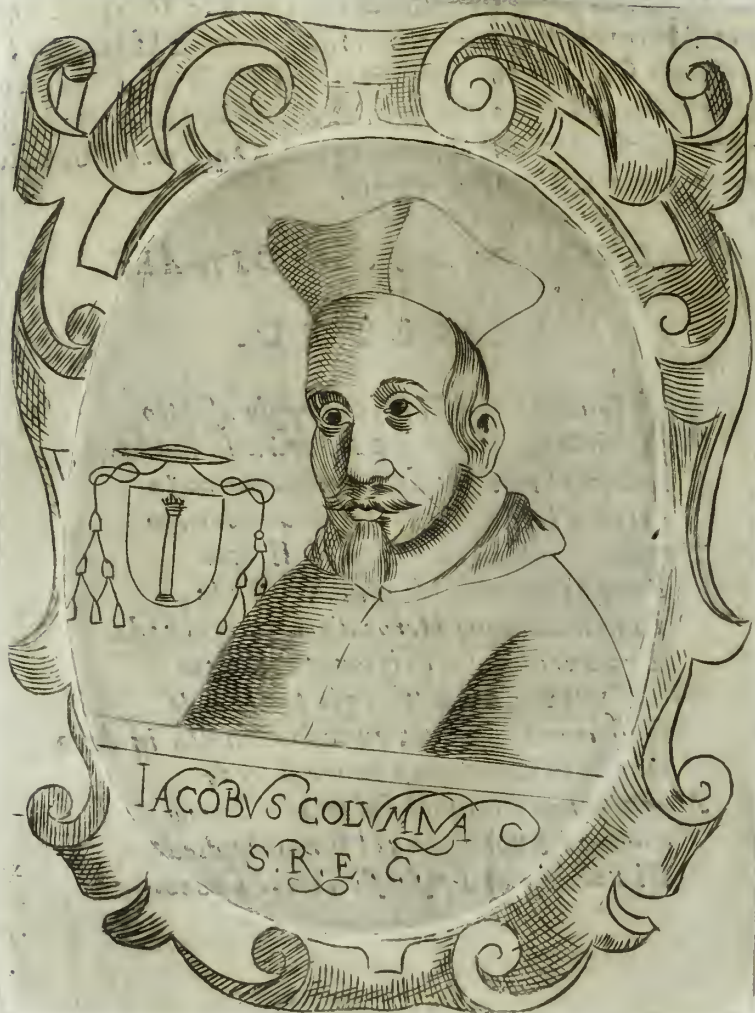 IACOBVS COLVMNA
S. R. E. C.